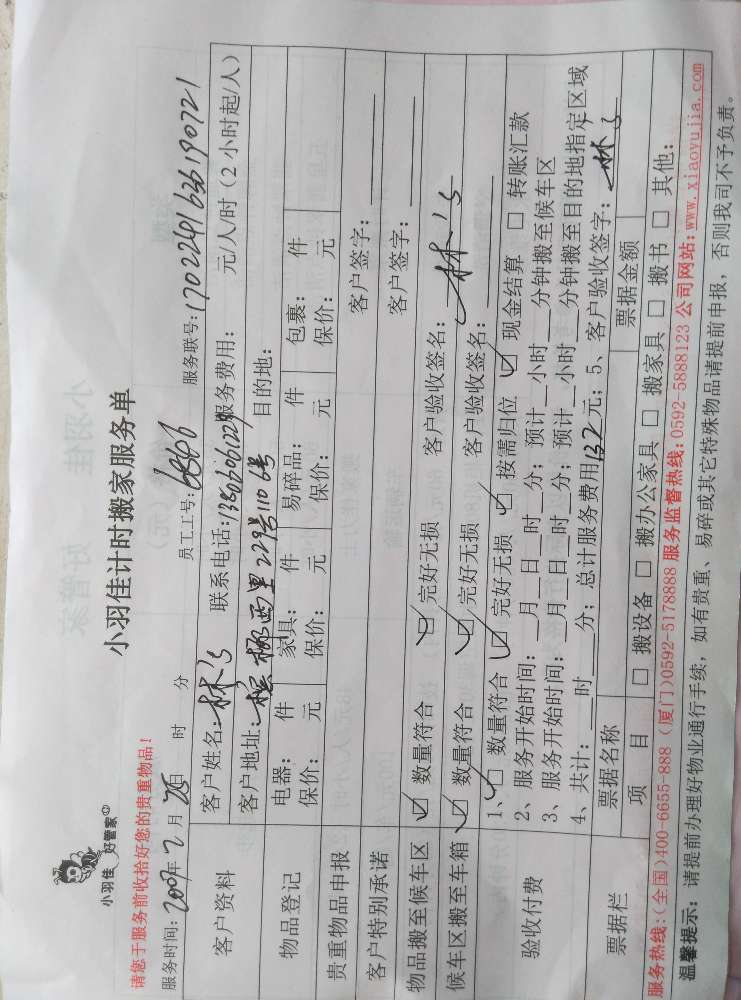 小羽佳 好管家
小羽佳计时搬家服务单
请您于服务前收拾好您的贵重物品!
服务时间: 年2月28日 时 分 员工工号:6866 服务联号:1702249163619072 1
客户资料 客户姓名:林's 联系电话: 服务费用: 元/人/时(2小时起/人)
客户地址: 槟榔西里229号110 目的地:
物品登记 电器: 件 家具: 件 易碎品: 件 包裹: 件
保价: 元 保价: 元 保价: 元 保价: 元
贵重物品申报 客户签字:
客户特别承诺 客户签字:
物品搬至候车区 ☑ 数量符合 ☑ 完好无损 客户验收签名: 林's
候车区搬至车箱 ☑ 数量符合 ☑ 完好无损 客户验收签名:
验收付费 1、☑ 数量符合 ☑ 完好无损 ☑ 按需归位 ☑ 现金结算 □ 转账汇款
2、服务开始时间:__月__日__时__分;预计__小时__分钟搬至候车区
3、服务开始时间:__月__日__时__分;预计__小时__分钟搬至目的地指定区域
4、共计:__时__分;总计服务费用132元;5、客户验收签字:林's
票据栏 票据名称 票据金额
项 目 □ 搬设备 □ 搬办公家具 □ 搬家具 □ 搬书 □ 其他:
服务热线:(全国)400-6655-888 (厦门)0592-5178888 服务监督热线:0592-5888123 公司网站:www.xiaoyujia.com
温馨提示:请提前办理好物业通行手续,如有贵重、易碎或其它特殊物品请提前申报,否则我司不予负责。